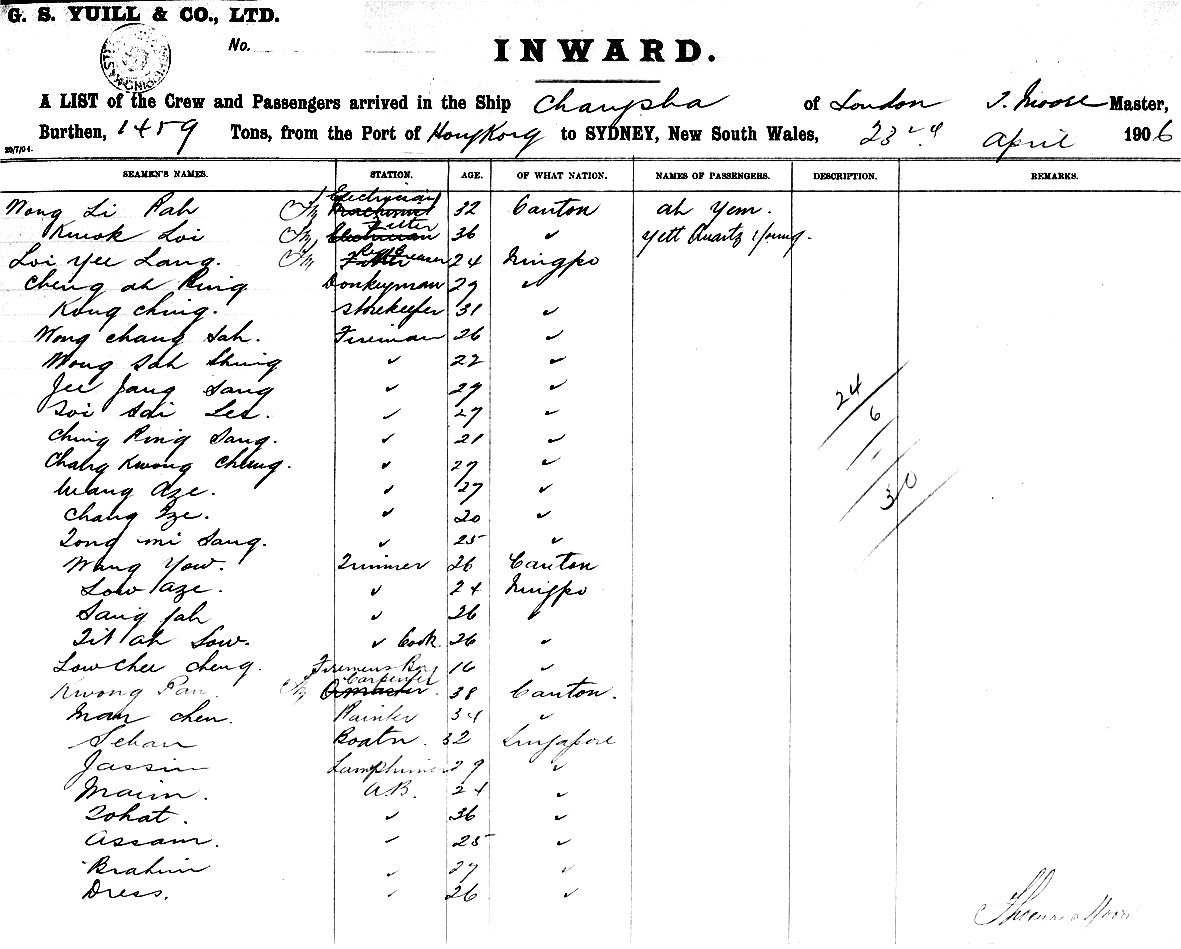 G. S. YUILL & CO., LTD.
No.
INWARD.
A LIST of the Crew and Passengers arrived in the Ship Changsha of London T. Moore Master,
Burthen, 1459 Tons, from the Port of HongKong to SYDNEY, New South Wales, 23rd April 1906
20/7/04.
SEAMEN'S NAMES. STATION. AGE. OF WHAT NATION. NAMES OF PASSENGERS. DESCRIPTION. REMARKS.
Wong Li Pah Electrician 32 Canton Ah Yem.
Kwok Loi Fitter 36 " Yett Quartz Young.
Loi Yee Lang. Greaser 24 Ningpo
Cheng Ah Ring Donkeyman 29 "
Kong Ching. Storekeeper 31 "
Wong Chang Sah. Fireman 26 "
Wong Sah Shing " 22 "
Jee Jang Sang " 29 "
Soi Sai Lee. " 27 "
Ching Ring Sang. " 21 "
Chang Kwong Cheung. " 27 "
Wang Aze. " 27 "
Chang Eze. " 20 "
Zong Mi Sang. " 25 "
Wang Yow. Trimmer 26 Canton
Low Aze. " 24 Ningpo
Sang Jah " 26 "
Tit Ah Sow. " Cook 26 "
Low Chee Cheng. Firemens Boy 16 "
Kwong Pan Carpenter 38 Canton.
Man Chen. Painter 34 "
Sehan Boatn. 32 Singapore
Jassin Lamptrimmer 29 "
Maim. A.B. 24 "
Tohat. " 36 "
Assam. " 25 "
Brahim " 27 "
Dress. " 26 "
24
6
30
Thomas Moore